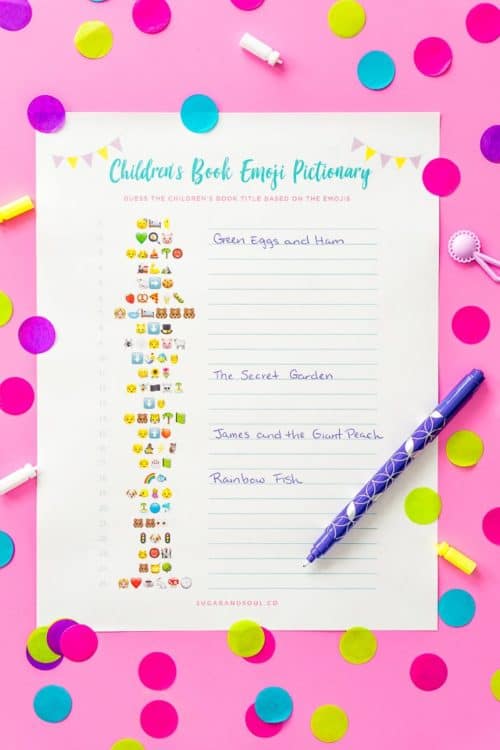 Children's Book Emoji Pictionary
GUESS THE CHILDREN'S BOOK TITLE BASED ON THE EMOJIS
Green Eggs and Ham
The Secret Garden
James and the Giant Peach
Rainbow Fish
SUGARANDSOUL.CO